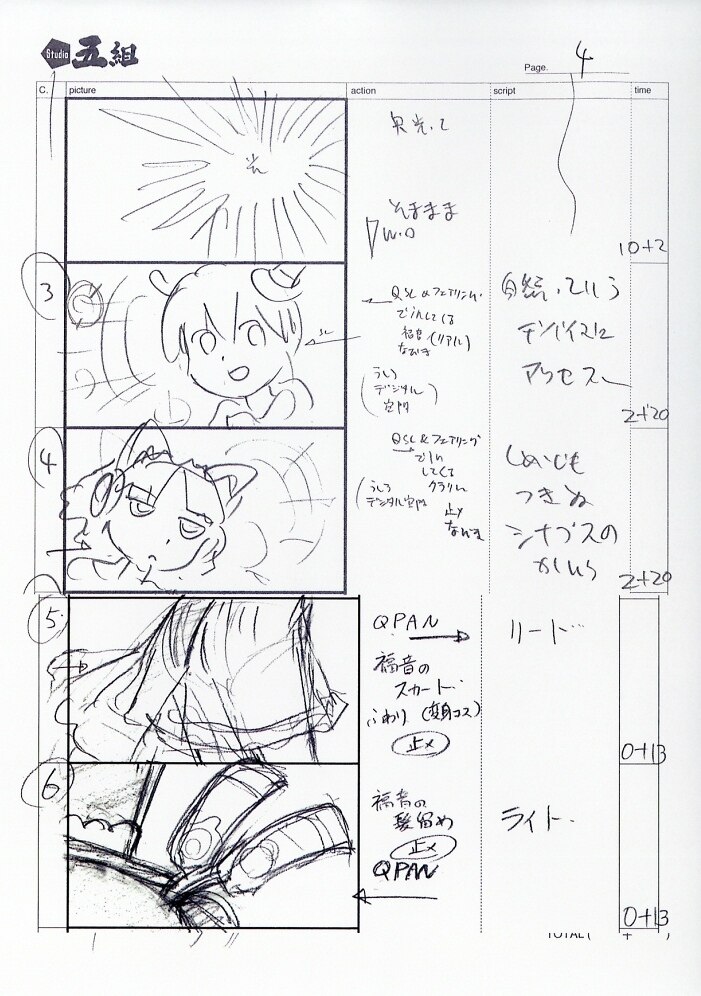 Studio 五組
Page. 4
C. picture action script time
光
奥光って
そのまま
W.O
10+2
3
QSL&フェアリング
でINしてくる
福音(リアル)
なびき
(うしろ
デジタル
空間)
SL
アクセス
2+20
4
QSL&フェアリング
でIN
してくる
クラリオン
(うしろ
デジタル空間)
止メ
なびき
つきぬ
シナプスの
2+20
5
QPAN
福音の
スカート
ふわり(変身コス)
止メ
リード…
0+13
6
福音の
髪留め
止メ
QPAN
ライト…
0+13
TOTAL( + )